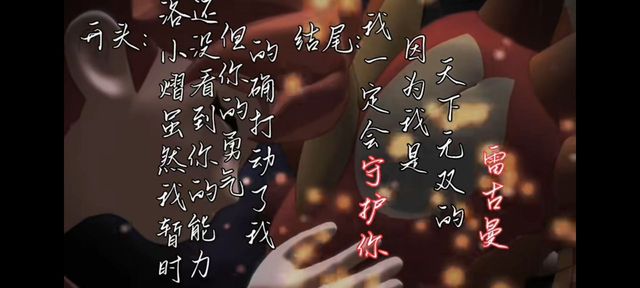 开头：
洛小熠虽然我暂时
还没看到你的能力
但你的勇气
的确打动了我
结尾：
我一定会守护你
因为我是
天下无双的
雷古曼